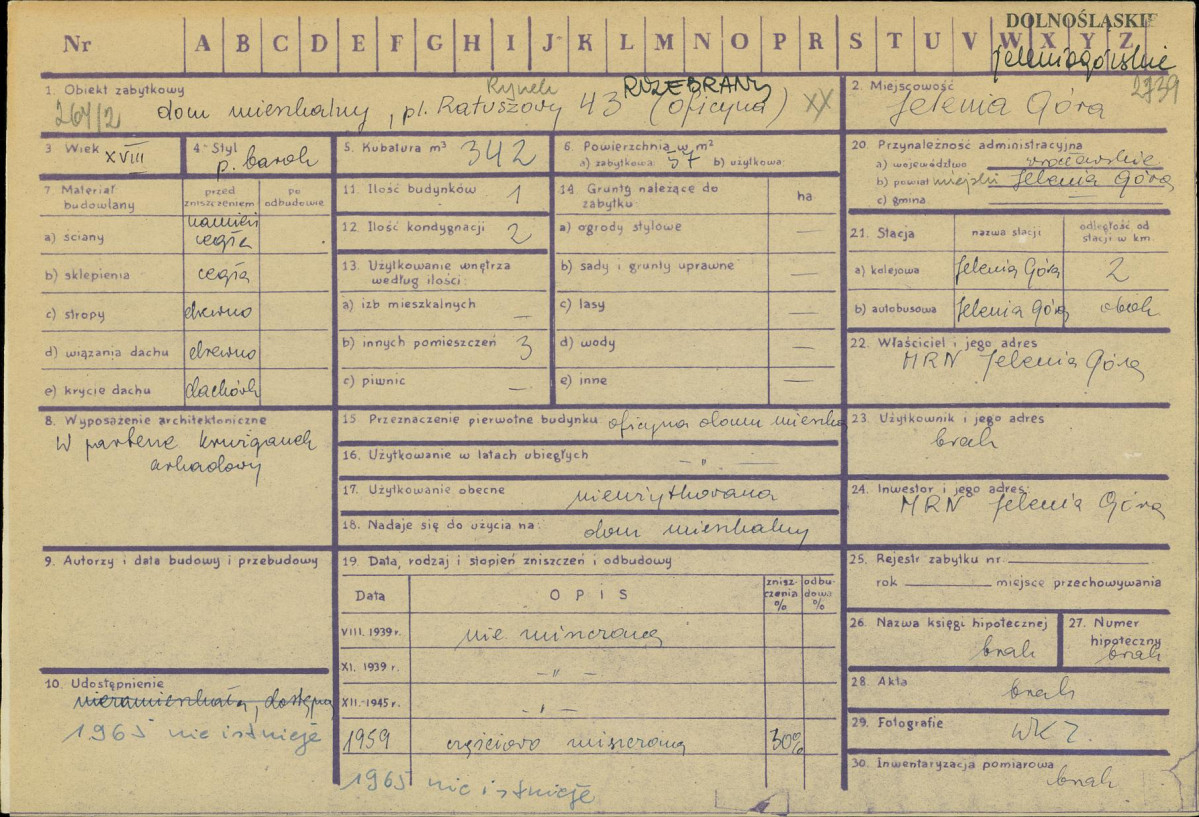 DOLNOŚLĄSKIE
Nr A B C D E F G H I J K L M N O P R S T U V W X Y Z
jeleniogórskie
1. Obiekt zabytkowy
Rynek ROZEBRANY
264/2 dom mieszkalny, pl. Ratuszowy 43 (oficyna) XX
2. Miejscowość 2739
Jelenia Góra
3 Wiek XVIII
4. Styl p. barok
5. Kubatura m³ 342
6. Powierzchnia w m²
a) zabytkowa: 57 b) użytkowa:
20. Przynależność administracyjna
a) województwo wrocławskie
b) powiat miejski Jelenia Góra
c) gmina
7. Materiał budowlany
przed zniszczeniem
po odbudowie
a) ściany kamień cegła
b) sklepienia cegła
c) stropy drewno
d) wiązania dachu drewno
e) krycie dachu dachówk
11. Ilość budynków 1
12. Ilość kondygnacji 2
13. Użytkowanie wnętrza
według ilości:
a) izb mieszkalnych —
b) innych pomieszczeń 3
c) piwnic —
14. Grunty należące do
zabytku: ha
a) ogrody stylowe —
b) sady i grunty uprawne —
c) lasy —
d) wody —
e) inne —
21. Stacja
nazwa stacji
odległość od
stacji w km
a) kolejowa Jelenia Góra 2
b) autobusowa Jelenia Góra obok
22. Właściciel i jego adres
MRN Jelenia Góra
8. Wyposażenie architektoniczne
W parterze krużganek
arkadowy
15. Przeznaczenie pierwotne budynku oficyna domu mieszka
16. Użytkowanie w latach ubiegłych — " —
17. Użytkowanie obecne nieużytkowana
18. Nadaje się do użycia na: dom mieszkalny
23. Użytkownik i jego adres
brak
24. Inwestor i jego adres:
MRN Jelenia Góra
9. Autorzy i data budowy i przebudowy
19. Data, rodzaj i stopień zniszczeń i odbudowy
Data OPIS znisz-
czenia
% odbu-
dowa
%
VIII. 1939 r. nie zniszczona
XI. 1939 r. — " —
XII. 1945 r. — " —
1959 częściowo zniszczona 30%
1965 nie istnieje
10. Udostępnienie
niezamieszkała, dostępna
1965 nie istnieje
25. Rejestr zabytku nr.
rok miejsce przechowywania
26. Nazwa księgi hipotecznej
brak
27. Numer
hipoteczny
brak
28. Akta
brak
29. Fotografie
WKZ.
30. Inwentaryzacja pomiarowa
brak